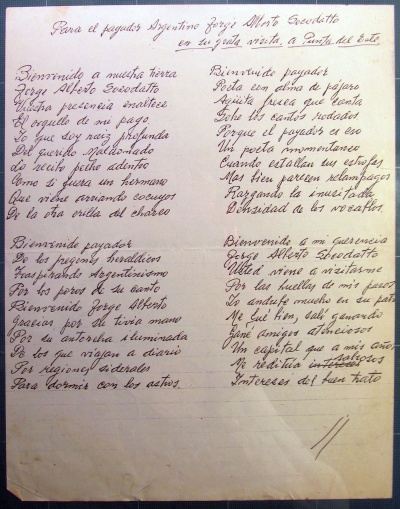 Para el payador Argentino Jorge Alberto Socodatto
en su grata visita, a Punta del Este
Bienvenido a nuestra tierra
Jorge Alberto Socodatto
Vuestra presencia enaltece
El orgullo de mi pago
Yo que soy raiz profunda
Del querido Maldonado
Lo recito pecho adentro
Como si fuera un hermano
Que viene arriando cocuyos
De la otra orilla del charco
Bienvenido payador
De los heraldicos
Traspirando Argentinismo
Por los poros de su canto
Bienvenido Jorge Alberto
Gracias por su tivia mano
Por su antorcha iluminada
De los que viajan a diario
Por regiones siderales
Para dormir con los astros.
Bienvenido payador
Poeta con alma de pájaro
Agüita fresca que canta
Sobre los cantos rodados
Porque el payador es eso
Un poeta momentaneo
Cuando estallan sus estrofas
Mas bien parecen relampagos
Razgando la inusitada
Densidad de los vocablos.
Bienvenido a mi querencia
Jorge Alberto Socodatto
Usted viene a visitarme
Por las huellas de mis pasos
Yo anduve mucho en su patria
Me fué bien, salí ganando
Gané amigos atenciosos
Un capital que a mis años
Me reditúa sabrosos
Intereses del buen trato